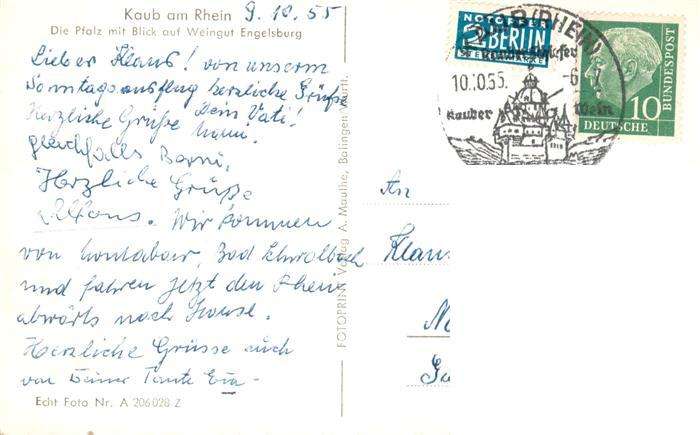 Kaub am Rhein 9.10.55
Die Pfalz mit Blick auf Weingut Engelsburg
Lieber Klaus! von unserm
Sonntagsausflug herzliche Grüße
Dein Vati!
Herzliche Grüße
gleichfalls
Herzliche Grüße
Alfons. Wir kommen
von Montabaur, Bad Schwalbach
und fahren jetzt den Rhein
abwärts nach Hause.
Herzliche Grüsse auch
von Deiner Tante Eva-
Echt Foto Nr. A 206028 Z
FOTOPRINT Verlag A. Mauthe, Balingen Württ.
NOTOPFER
2 BERLIN
STEUERMARKE
KAUB (RHEIN)
10.10.55. -6-7
Kauber Wein
10
DEUTSCHE
BUNDESPOST
An
Klaus